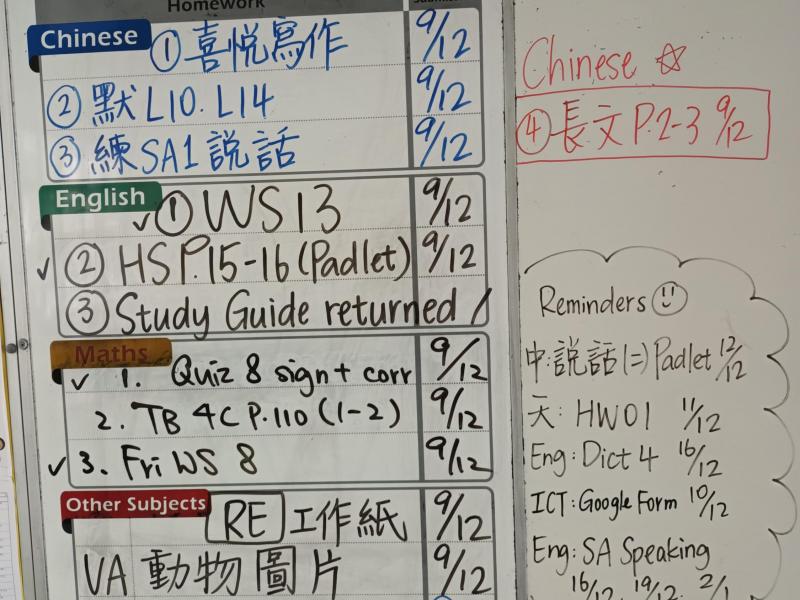 Homework
Chinese ① 喜悅寫作 9/12
② 默 L10. L14 9/12
③ 練 SA1 説話 9/12
English ✓① WS 13 9/12
✓② HS P.15-16 (Padlet) 9/12
③ Study Guide returned /
Maths
✓ 1. Quiz 8 sign + corr 9/12
2. TB 4C P.110 (1-2) 9/12
✓ 3. Fri WS 8 9/12
Other Subjects RE 工作紙 9/12
VA 動物圖片 9/12
Chinese ☆
④ 長文 P.2-3 9/12
Reminders ☺
中:説話(二) Padlet 12/12
天: HW01 11/12
Eng: Dict 4 16/12
ICT: Google Form 10/12
Eng: SA Speaking
16/12, 19/12, 2/1